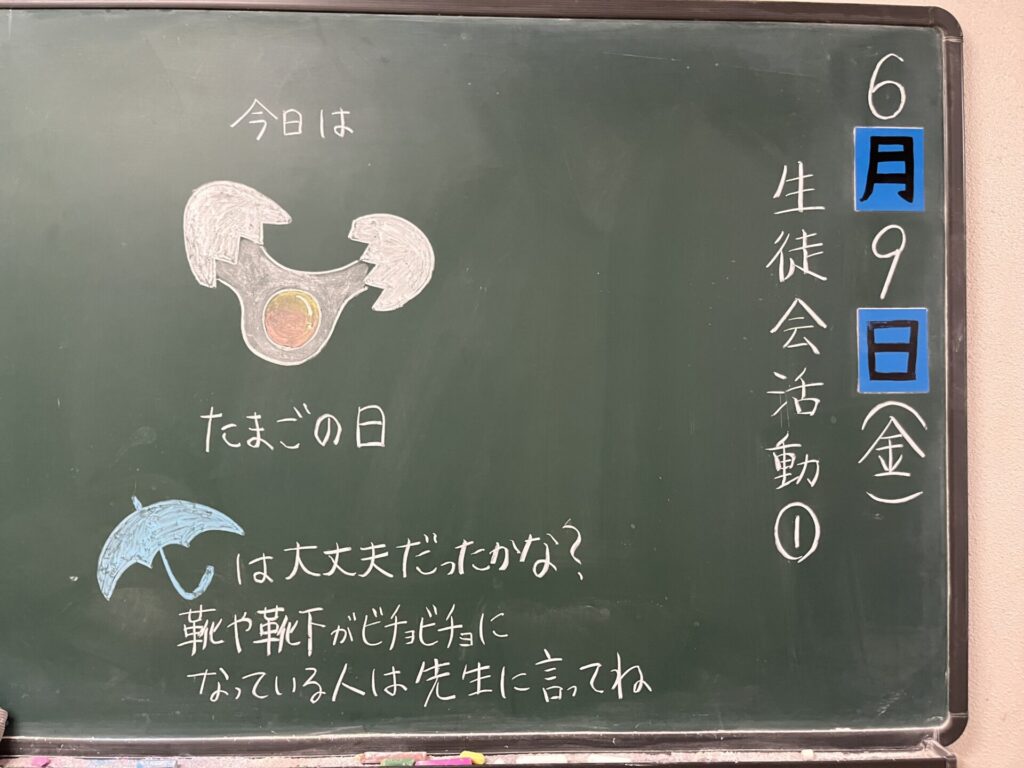 6月9日(金)
生徒会活動①
今日は
たまごの日
は大丈夫だったかな？
靴や靴下がビチョビチョに
なっている人は先生に言ってね